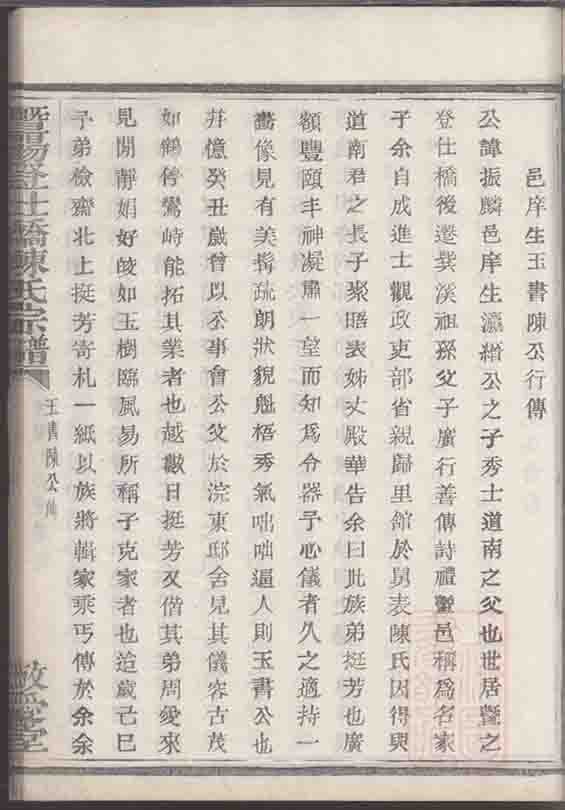 邑庠生玉書陳公行傳
公諱振麟邑庠生瀛纘公之子秀士道南之父也世居暨之
登仕橋後遷巽溪祖孫父子廣行善傳詩禮暨邑稱爲名家
子余自成進士觀政吏部省親歸里館於舅表陳氏因得與
道南君之長子聚晤表姊丈殿華告余曰此族弟挺芳也廣
額豐頤丰神凝肅一望而知爲令器予心儀者久之適持一
畵像見有美髯疏朗狀貌魁梧秀氣咄咄逼人則玉書公也
幷憶癸丑歲曾以公事會公父於浣東邸舍見其儀容古茂
如鶴停鸞峙能拓其業者也越數日挺芳又偕其弟周愛來
見閒靜娟好皎如玉樹臨風易所稱子克家者也迨歲己巳
予弟檢齋北上挺芳寄札一紙以族將輯家乘丐傳於余余
暨陽登仕橋陳氏宗譜
玉書陳公
敬愛堂